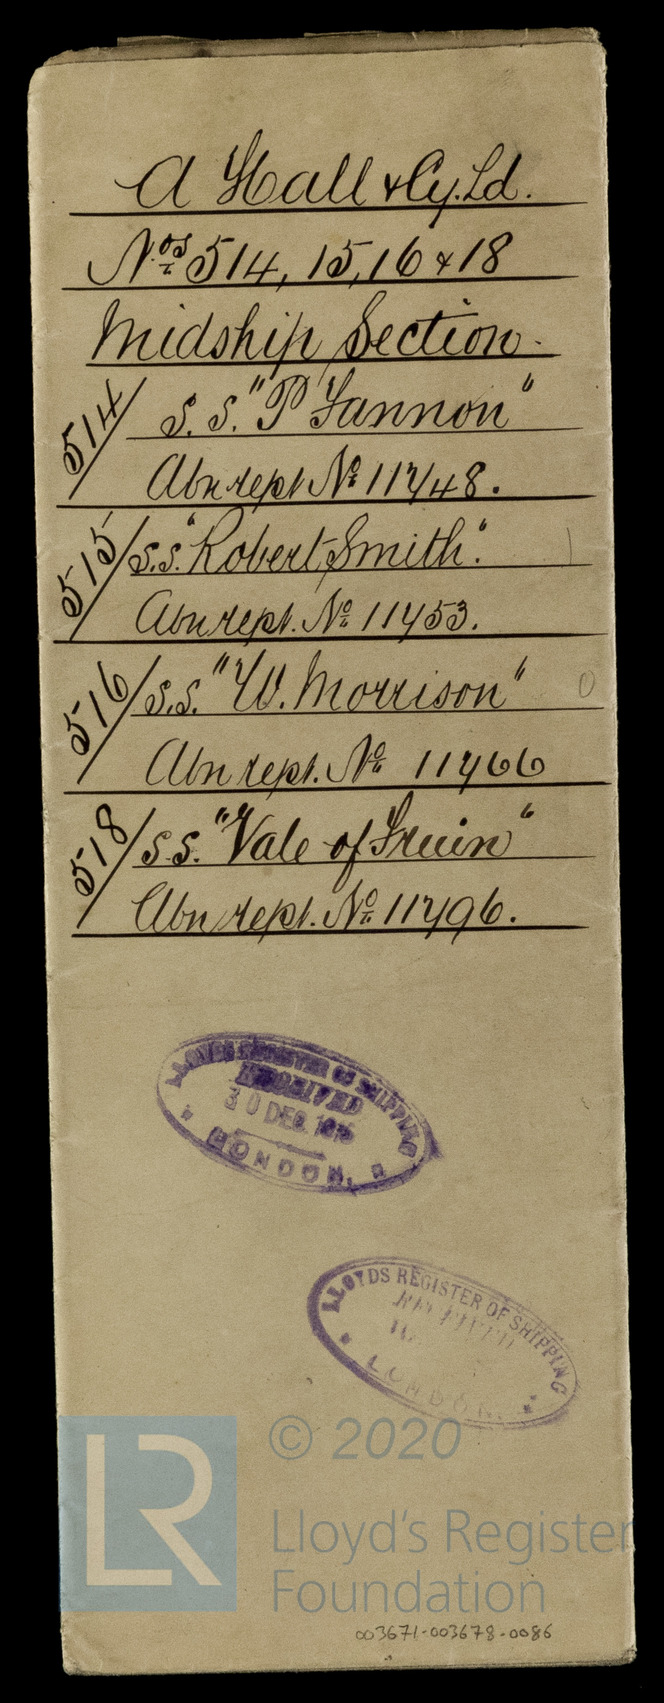 A Hall & Cy. Ld.
Nos 514, 15, 16 & 18
Midship Section.
514/ S.S. "P Fannon"
Abn rept No 11748.
515/ S.S. "Robert Smith".
Abn rept. No 11753.
516/ S.S. "W. Morrison"
Abn rept. No 11766
518/ S.S. "Vale of Fruin"
Abn rept. No 11796.
LLOYDS REGISTER OF SHIPPING
RECEIVED
30 DEC
LONDON.
LLOYDS REGISTER OF SHIPPING
RECEIVED
LONDON.
LR
© 2020
Lloyd's Register
Foundation
003671-003678-0086